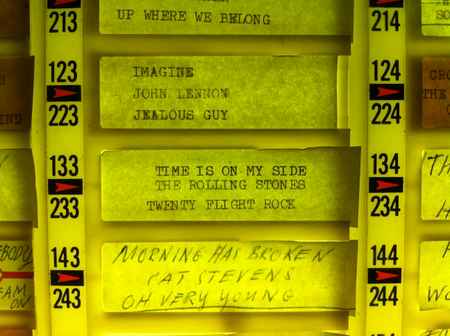 213
UP WHERE WE BELONG
214
SO
123
IMAGINE
JOHN LENNON
JEALOUS GUY
223
124
THE
224
133
TIME IS ON MY SIDE
THE ROLLING STONES
TWENTY FLIGHT ROCK
233
134
234
143
MORNING HAS BROKEN
CAT STEVENS
OH VERY YOUNG
243
ON
144
244